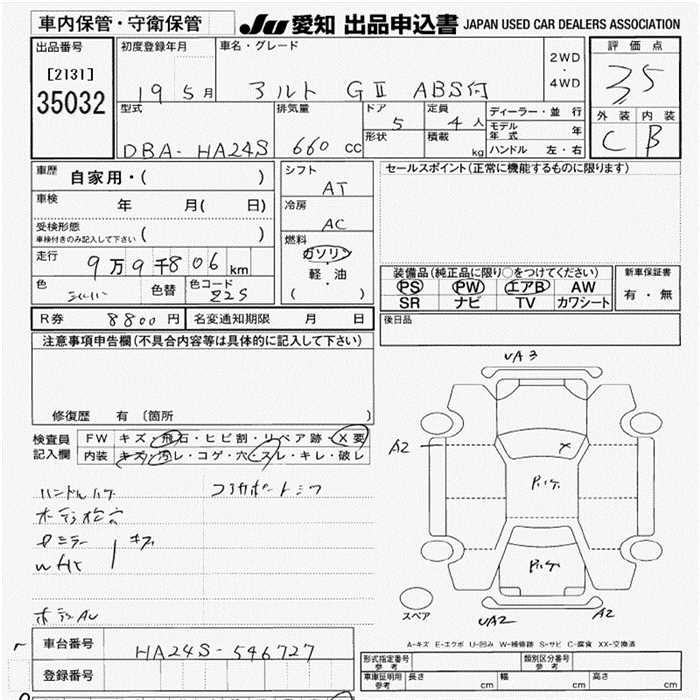 車内保管・守衛保管 JU 愛知 出品申込書 JAPAN USED CAR DEALERS ASSOCIATION
出品番号
[2131]
35032
初度登録年月
19 5月
車名・グレード
アルト GⅡ ABS付
2WD
・
4WD
評価点
3.5
外装 内装
C B
型式
DBA-HA24S
排気量
660 CC
ドア
5
定員
4人
形状
積載
kg
ディーラー・並行
モデル年式 年
ハンドル 左・右
車歴 自家用・( )
車検 年 月( 日)
受検形態
車検付きのみ記入して下さい ( )
走行 9万9千806km
色 シルバー 色替 色コード Z2S
シフト
AT
冷房
AC
燃料
ガソリン
軽・油
( )
セールスポイント(正常に機能するものに限ります)
装備品(純正品に限り○をつけてください)
PS PW エアB AW
SR ナビ TV カワシート
新車保証書
有・無
R券 8800円 名変通知期限 月 日
後日品
注意事項申告欄(不具合内容等は具体的に記入して下さい)
修復歴 有〔箇所 〕
検査員記入欄
FW キズ・飛石・ヒビ割・リペア跡・X要
内装 キズ・汚レ・コゲ・穴・スレ・キレ・破レ
ハンドルハゲ
UA3
A2
X
UA2
A2
スペア
A-キズ E-エクボ U-凹み W-補修跡 S-サビ C-腐食 XX-交換済
車台番号 HA24S-546727
登録番号
型式指定番号
参考
類別区分番号
参考
車庫証明用
参考
長さ cm 幅 cm 高さ cm